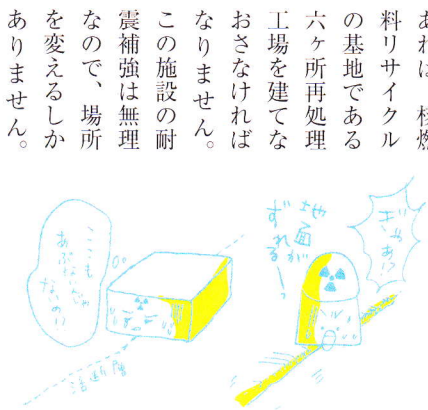 あれば、核燃
料リサイクル
の基地である
六ヶ所再処理
工場を建てな
おさなければ
なりません。
この施設の耐
震補強は無理
なので、場所
を変えるしか
ありません。
ぎゃあ!?
地面が
ずれるー!
ここも
あぶないんじゃ
ないの!?
活断層